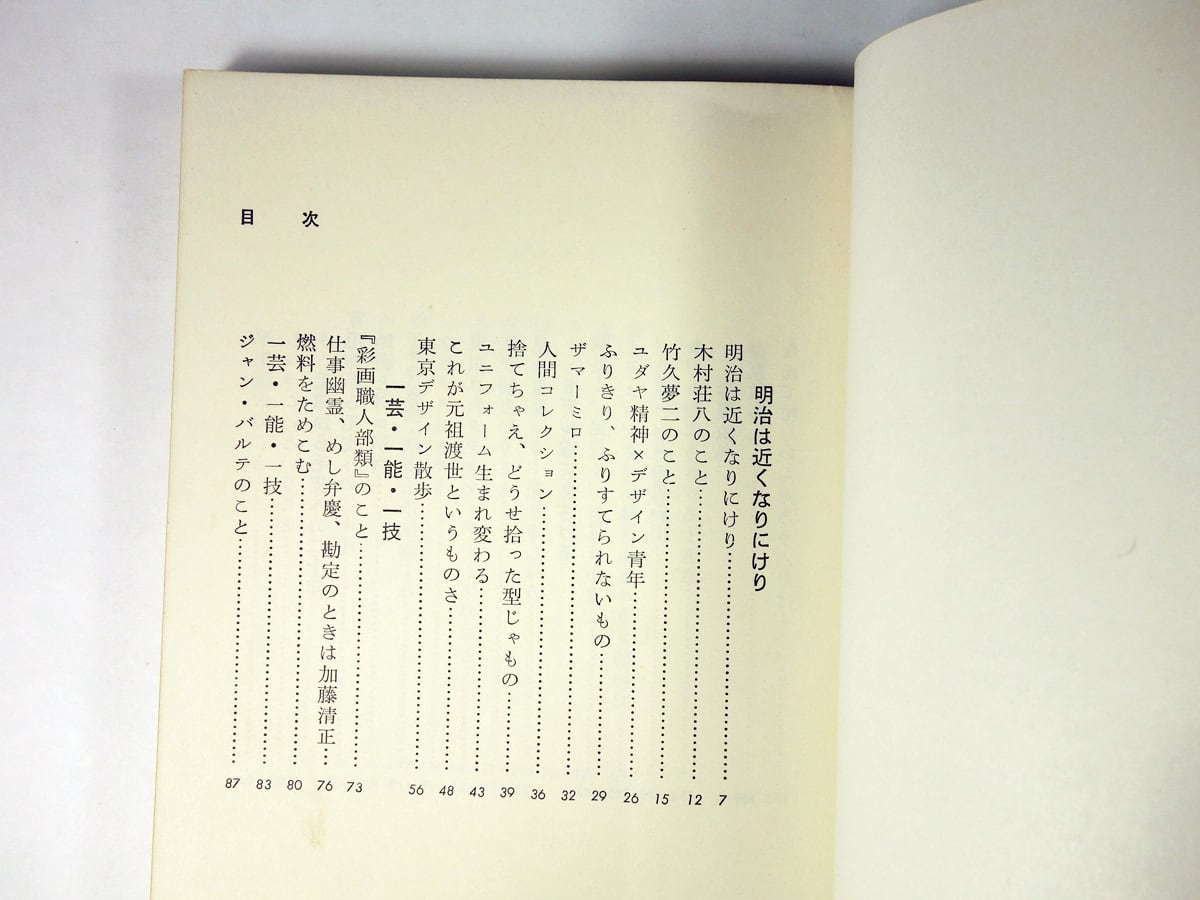 目次
明治は近くなりにけり
明治は近くなりにけり……………………7
木村荘八のこと……………………12
竹久夢二のこと……………………15
ユダヤ精神×デザイン青年……………………26
ふりきり、ふりすてられないもの……………………29
ザマーミロ……………………32
人間コレクション……………………36
捨てちゃえ、どうせ拾った型じゃもの……………………39
ユニフォーム生まれ変わる……………………43
これが元祖渡世というものさ……………………48
東京デザイン散歩……………………56
一芸・一能・一技
『彩画職人部類』のこと……………………73
仕事幽霊、めし弁慶、勘定のときは加藤清正……76
燃料をためこむ……………………80
一芸・一能・一技……………………83
ジャン・バルテのこと……………………87